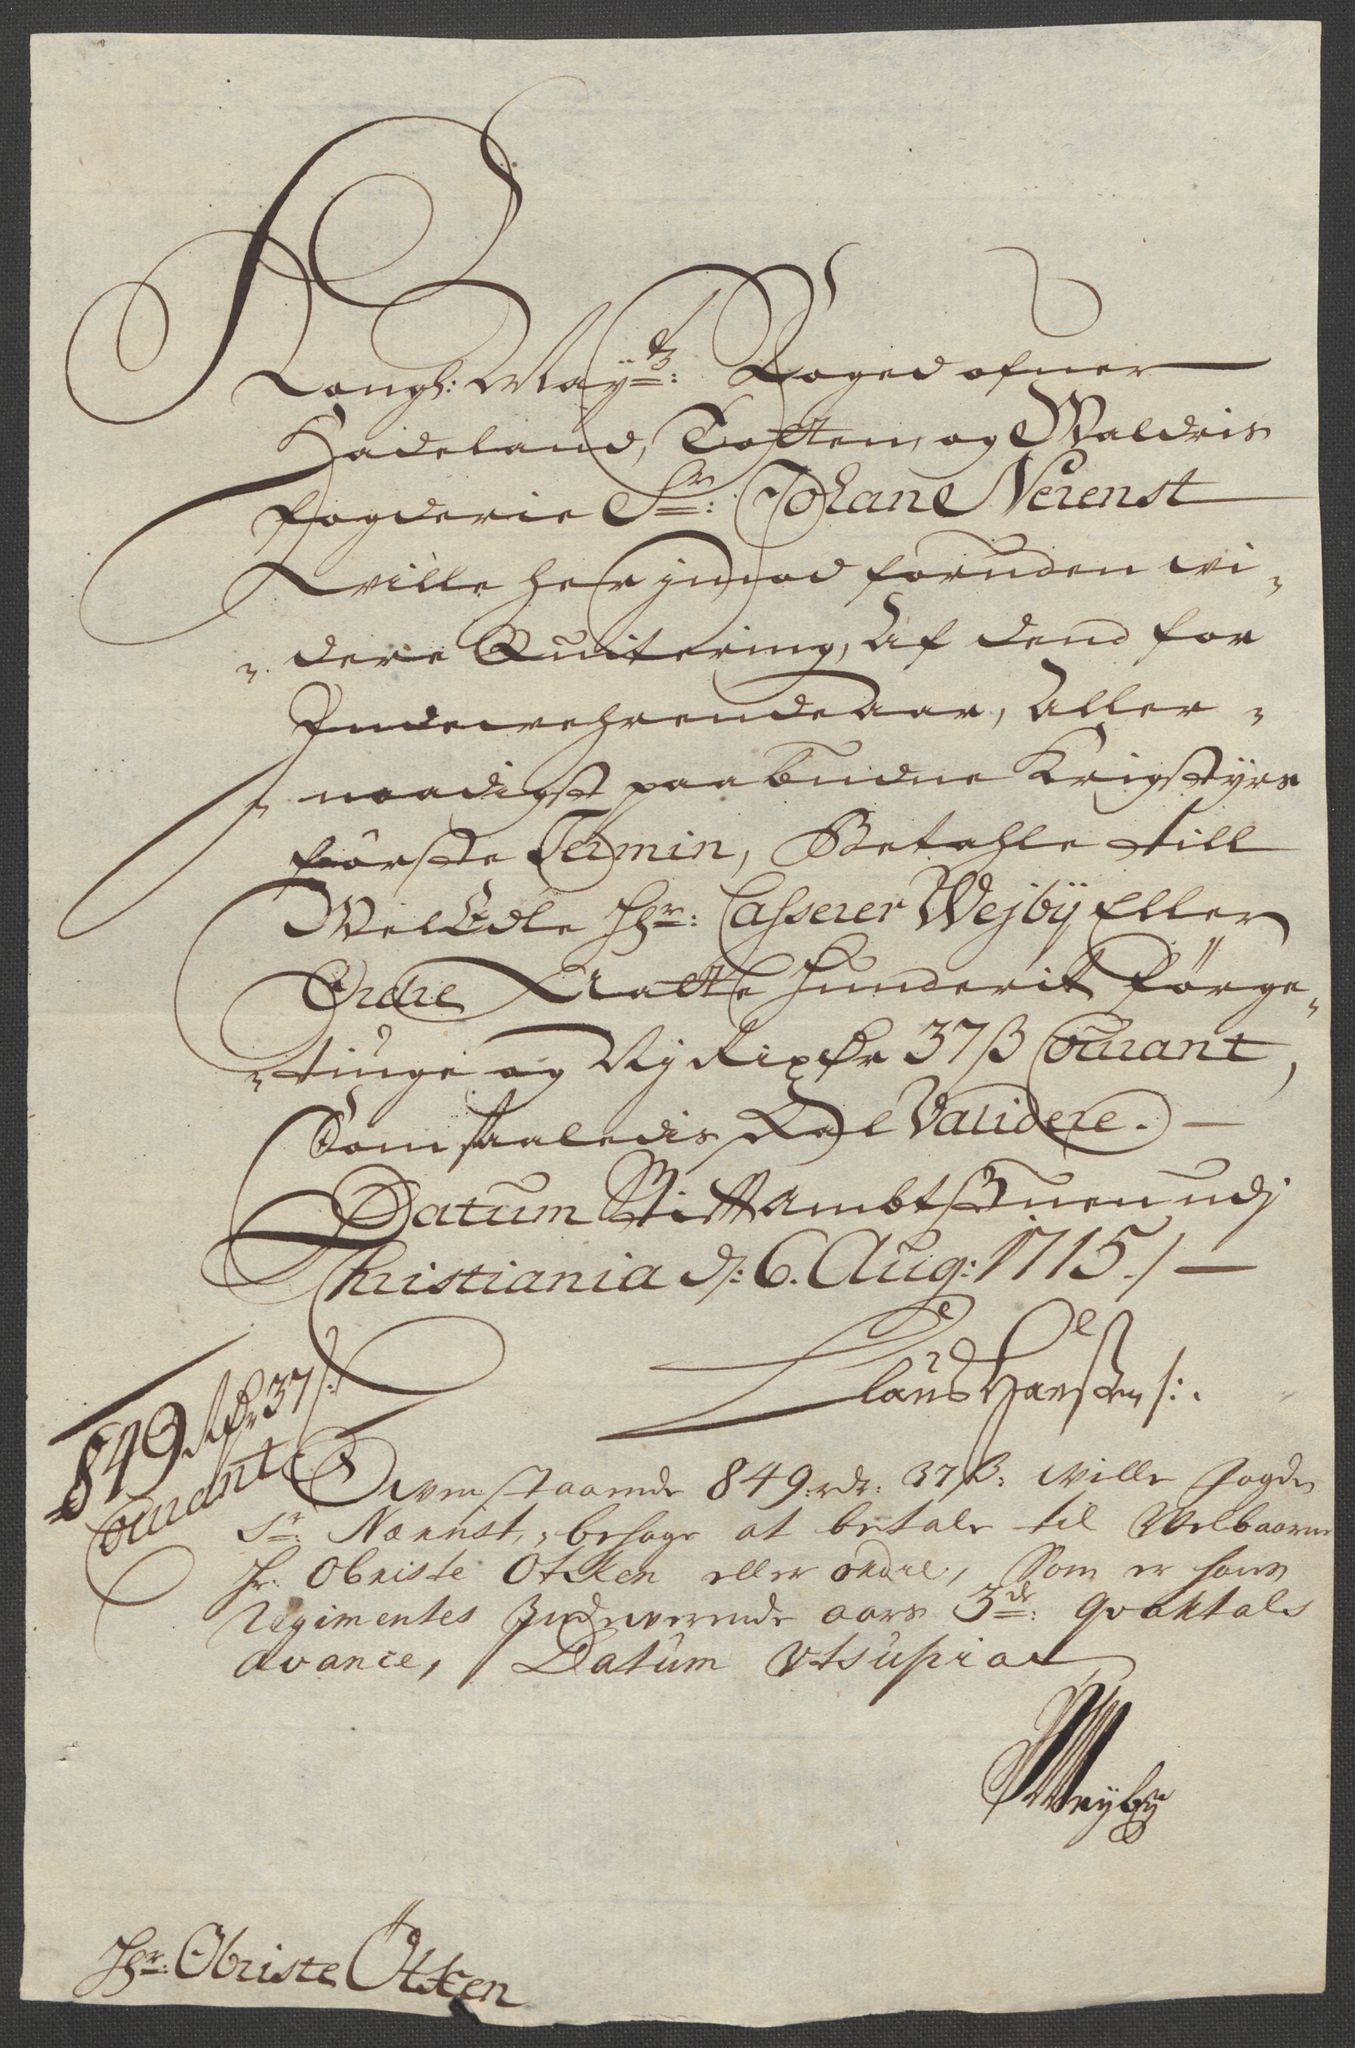 Kongl: Mayᵗᶻ: Foged ofuer
Hadeland, Totten, og Waldris
fogderie Sr: Johan Neuenst
wille her imod foruden wi-
-dere Quitering, Af dend for
Indewehrendeaar, Aller-
-naadigst paabudne Krigstyrs
første Termin, Betahle till
WelEdle Hr: Casserer Wejbÿ Eller
Ordre Aatte hundrit førge-
-tiuge og Nj Rixdr 37 ß Courant,
Som saaledis skal Validere.
Datum StiftAmbtstuen udj
Christiania d: 6. Aug: 1715./
Claus Hansen
849 Rdr 37 ß
Courant
Owenstaaende 849: rdr: 37 ß: wille fogde
Sr: Nærnst, behage at betale til Welbaarne
Hr. Obriste Otken eller ordre, Som er hans
Regimentes Indeværende aars 3de: Qvartals
avance, Datum Utsupra
Weyby
Hr: Obriste Otken